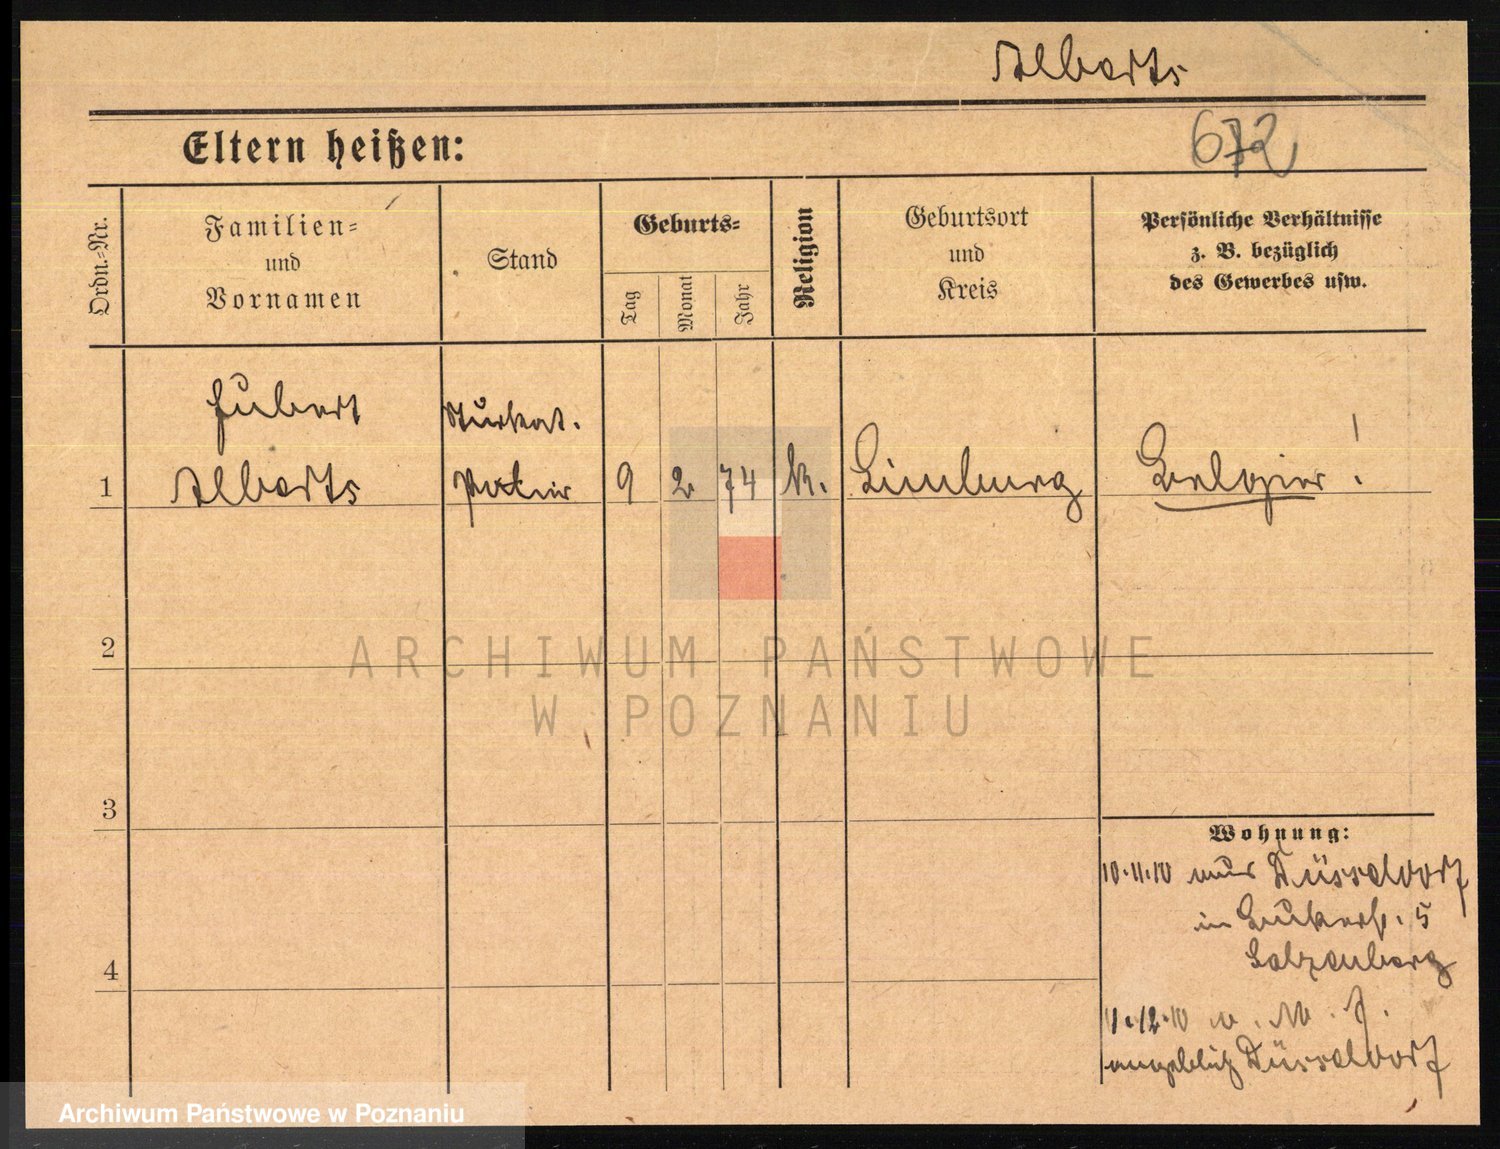 Alberts
672
Eltern heißen:
Ordn.-Nr.
Familien-
und
Vornamen
Stand
Geburts-
Tag
Monat
Jahr
Religion
Geburtsort
und
Kreis
Persönliche Verhältnisse
z. B. bezüglich
des Gewerbes usw.
Hubert
Stuckat.
1 Alberts Polier 9 2 74 k. Limburg Belgier!
2
ARCHIWUM PAŃSTWOWE
W POZNANIU
3
Wohnung:
10.11.10 aus Düsseldorf
in 5
4
Salzenberg
1.12.10 n. M. J.
angeblich Düsseldorf
Archiwum Państwowe w Poznaniu